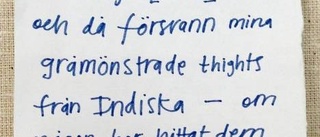 och då försvann mina
gråmönstrade thights
från Indiska – om
någon har hittat dem